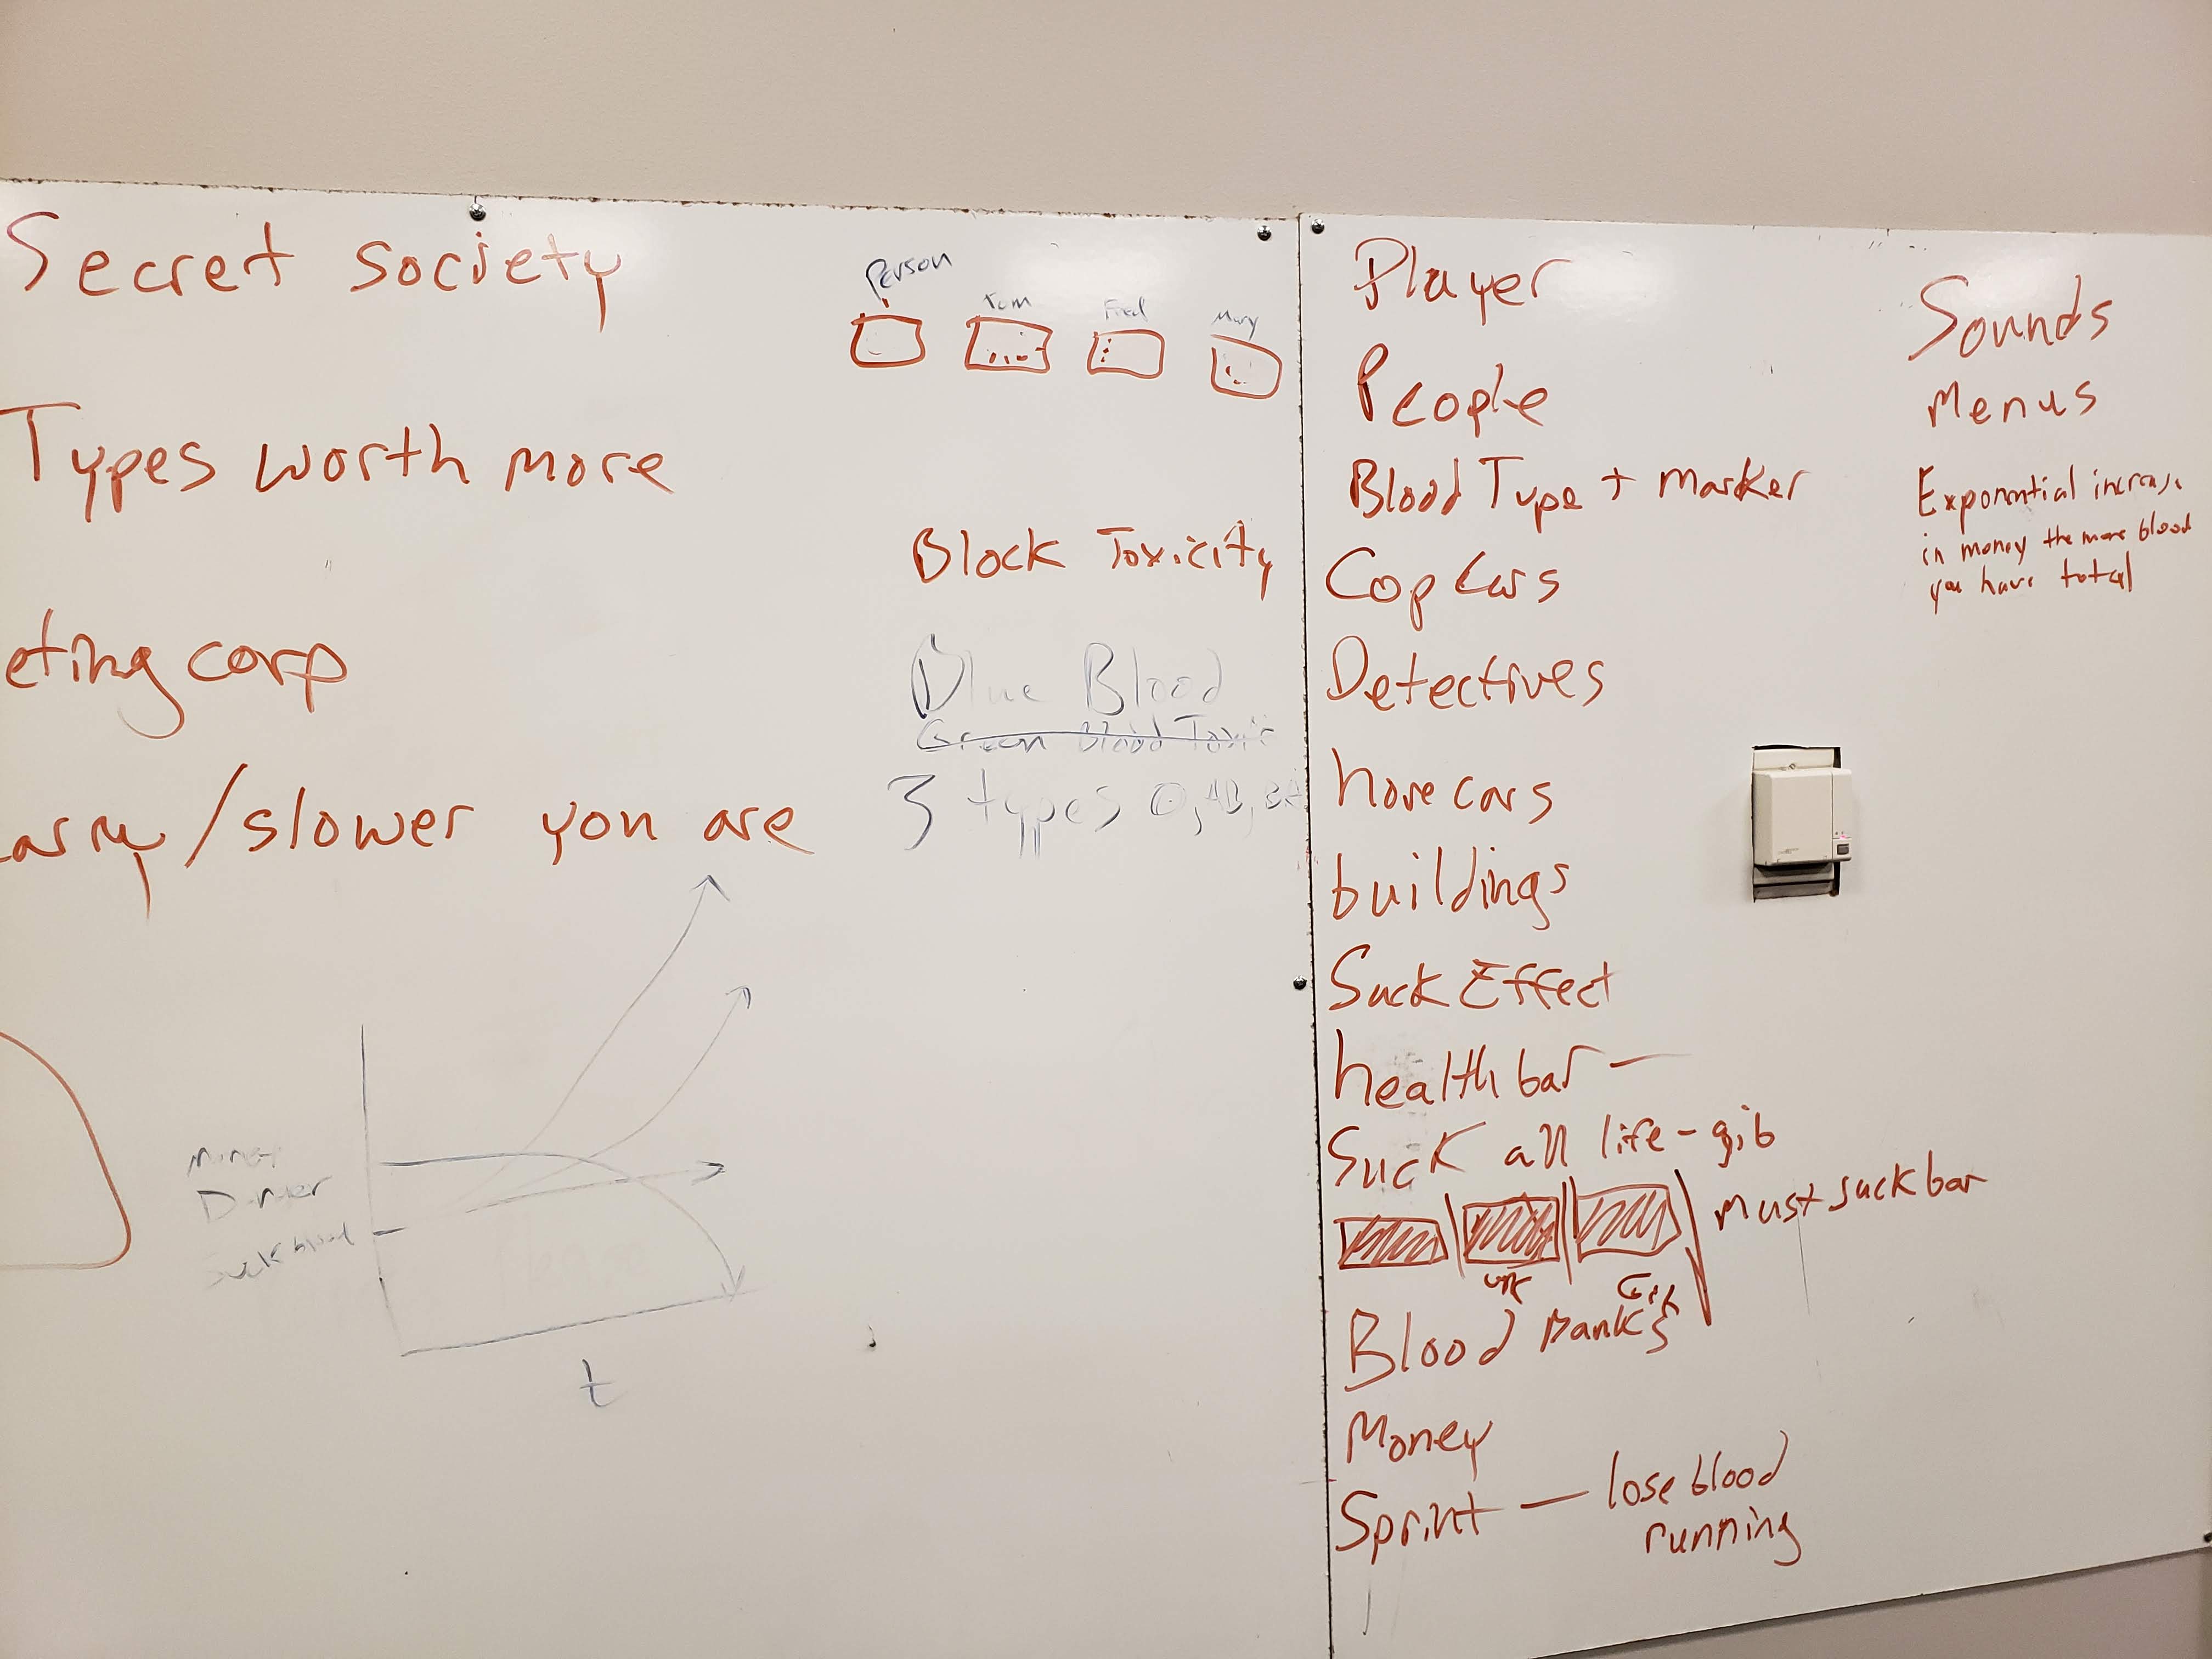 Secret society
Types worth more
eting corp
arry/slower you are
Person
Tom
Fred
Mary
Block Toxicity
Blue Blood
Green Blood Toxic
3 types O, AB,
Money
Suck blood
t
Player
People
Blood Type + marker
Cop Cars
Detectives
hovecars
buildings
Suck Effect
health bar —
Suck all life - gib
Must suck bar
Blood Banks
Money
Sprint — lose blood
running
Sounds
Menus
Exponential increase
in money the more blood
you have total